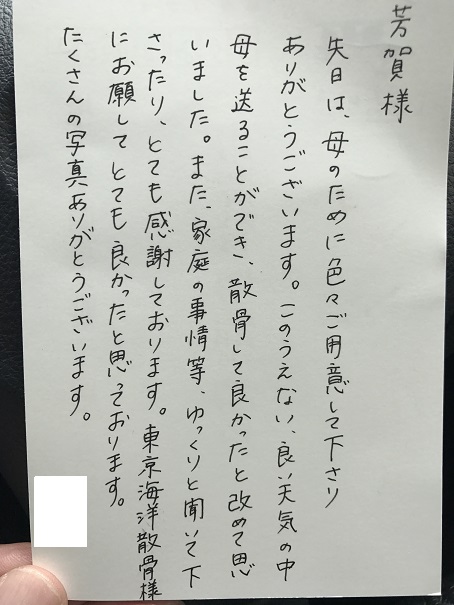 芳賀様
先日は、母のために色々ご用意して下さり
ありがとうございます。このうえない、良い天気の中
母を送ることができ、散骨して良かったと改めて思
いました。また、家庭の事情等、ゆっくりと聞いて下
さったり、とても感謝しております。東京海洋散骨様
にお願してとても良かったと思っております。
たくさんの写真ありがとうございます。